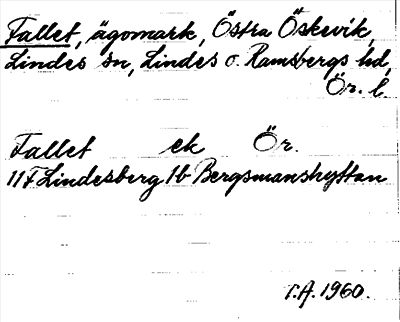 Fallet, ägomark, Östra Öskevik,
Lindes sn, Lindes o. Ramsbergs hd,
Ör. l.
Fallet ek Ör.
11 F Lindesberg 1b Bergsmanshyttan
r.A. 1960.